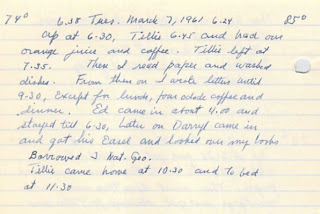 74° 6.38 Tues. March 7, 1961 6.24 85°
Up at 6-30, Tillie 6.45 and had our
orange juice and coffee. Tillie left at
7.35. Then I read paper and washed
dishes. From then on I wrote letters until
9-30, Except for lunch, four oclock coffee and
dinner. Ed came in about 4.00 and
stayed till 6.30, Later on Darryl came in
and got his Easel and looked over my books
Borrowed 2 Nat. Geo.
Tillie came home at 10.30 and to bed
at 11.30